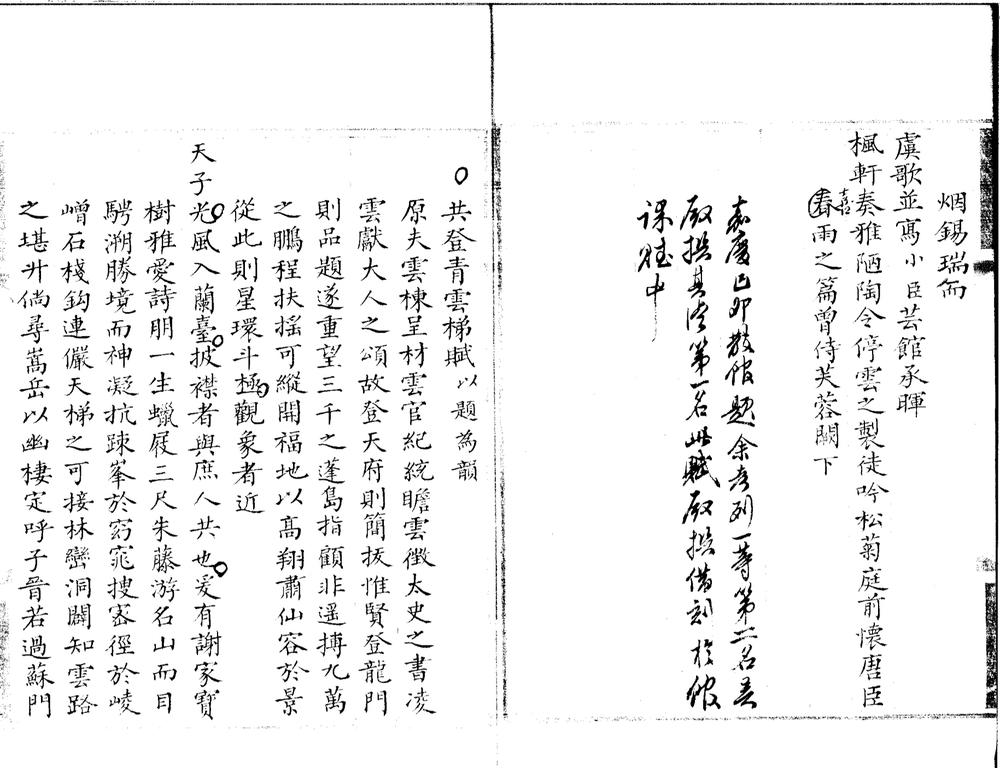 烟錫瑞而
虞歌並寫小臣芸館承暉
楓軒奏雅陋陶令停雲之製徒吟松菊庭前懷唐臣
喜春雨之篇曾侍芙蓉闕下
嘉慶己卯散館題余考列一等第二名吳
殿撰其濬第一名此賦殿撰借刻於館
課賦中
共登青雲梯賦以題為韻
原夫雲棟呈材雲官紀統瞻雲徵太史之書凌
雲獻大人之頌故登天府則簡拔惟賢登龍門
則品題遂重望三千之蓬島指顧非遥搏九萬
之鵬程扶搖可縱開福地以高翔肅仙容於景
從此則星環斗極觀象者近
天子光風入蘭臺披襟者與庶人共也爰有謝家寶
樹雅愛詩朋一生蠟屐三尺朱藤游名山而目
騁溯勝境而神凝抗踈峯於窈窕搜宻徑於崚
嶒石棧鈎連儼天梯之可接林巒洞闢知雲路
之堪升倘尋嵩岳以幽棲定呼子晉若過蘇門